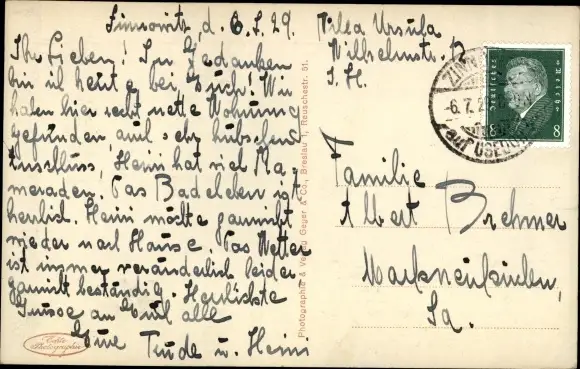 Zinnowitz, d. 6.7.29.
Ihr Lieben! In Gedanken
bin ich heute bei Euch! Wir
haben hier recht nette Wohnung
gefunden auch sehr hübschen
Anschluss, Heini hat viel Ka-
meraden. Das Badeleben ist
herrlich. Heini möchte garnicht
wieder nach Hause. Das Wetter
ist immer veränderlich leider
garnicht beständig. Herzlichste
Grüsse an Euch alle
Eure Trude u. Heini
Echte Photographie
Photographie & Verlag Geyer & Co., Breslau 1, Reuschestr. 51.
Villa Ursula
Wilhelmstr.
Deutsches Reich
8 8
-6.7.2
auf USEDOM
Familie
Albert Brehmer
Markneukirchen,
Sa.